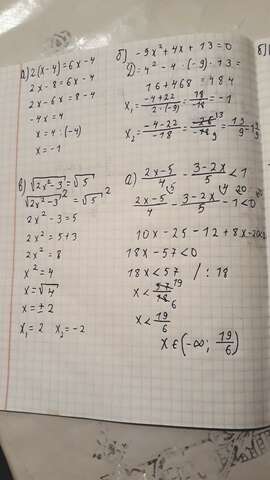 а) 2(x-4)=6x-4
2x-8=6x-4
2x-6x=8-4
-4x=4
x=4:(-4)
x=-1
б) -9x²+4x+13=0
D=4²-4·(-9)·13=
16+468=484
x₁=-4+22/2·(-9)=18/-18=-1
x₂=-4-22/-18=-26/-18=13/9=1
в) √2x²-3=√5
√2x²-3²=√5²
2x²-3=5
2x²=5+3
2x²=8
x²=4
x=√4
x=±2
x₁=2 x₂=-2
2x-5/4-3-2x/5<1
2x-5/4-3-2x/5-1<0
10x-25-12+8x-20<0
18x-57<0
18x<57 /:18
x<57/18
x<19/6
x∈(-∞; 19/6)
б)